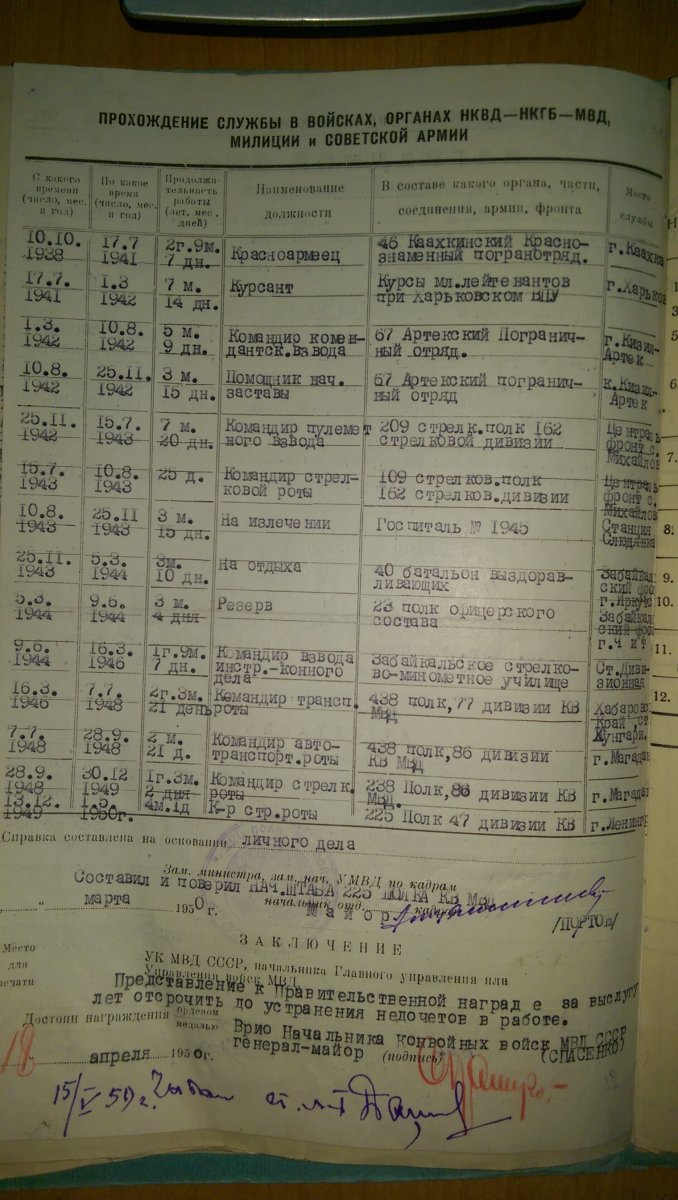 ПРОХОЖДЕНИЕ СЛУЖБЫ В ВОЙСКАХ, ОРГАНАХ НКВД—НКГБ—МВД,
МИЛИЦИИ и СОВЕТСКОЙ АРМИИ
С какого времени (число, мес. и год) По какое время (число, мес. и год) Продолжительность работы (лет, мес., дней) Наименование должности В составе какого органа, части, соединения, армии, фронта Место службы
10.10. 17.7 2г.9м. 46 Каахкинский Красно-
1938 1941 7 дн. Красноармеец знаменный погранотряд. г.Каахка
17.7. 1.3 7 м. Курсант Курсы мл.лейтенантов г.Харьков
1941 1942 14 дн. при Харьковском ВПУ
1.3. 10.8. 5 м. Командир комен- 67 Артекский Погранич- г.Кизил-
1942 1942 9 дн. дантск.взвода ный отряд. Артек
10.8. 25.11. 3 м. Помощник нач. 67 Артекский погранич- к.Кизил-
1942 1942 15 дн. заставы ный отряд Артек
25.11. 15.7. 7 м. Командир пулемет 209 стрелк.полк 162 Централь
1942 1943 20 дн. ного взвода стрелковой дивизии фронт с.
Михайлов
15.7. 10.8. 25 д. Командир стрел- 109 стрелков.полк Централь
1943 1943 ковой роты 162 стрелков.дивизии фронт с.
Михайлов
10.8. 25.11 3 м. На излечении Госпиталь № 1945 Станция
1943 1943 15 дн. Слюдянка
25.11. 5.3. 3м. На отдыха 40 батальон выздорав- Забайкал
1943 1944 10 дн. ливающих ский фро
г.Иркутс
5.3. 9.6. 3 м. Резерв 23 полк офицерского Забайкал
1944 1944 4 дня состава ский фро
г.Чит
9.6. 16.3. 1г.9м. Командир взвода Забайкальское стрелко- Ст.Диви-
1944 1946 7 дн. инстр.-конного во-минометное училище зионная
дела
16.3. 7.7. 2г.3м. Командир трансп. 438 полк,77 дивизии КВ Хабаровс
1946 1948 21 день роты МВД Край,ст.
Хунгари.
7.7. 28.9. 2 м. Командир авто- 438 полк,86 дивизии г.Магадан
1948 1948 21 д. транспорт.роты КВ МВД
28.9. 30.12 1г.3м. Командир стрелк. 238 Полк,86 дивизии КВ г.Магадан
1948 1949 2 дня роты МВД.
13.12. 1.5. 4м.1д К-р стр.роты 225 Полк 47 дивизии КВ г.Ленингр
1949 1950г.
Справка составлена на основании личного дела
Зам. министра, зам. нач. УМВД по кадрам
Составил и поверил НАЧ.ШТАБА 225 ПОЛКА КВ МВД
начальник отд. кадров
" марта 1950 г. Майор
/ПОРТОВ/
ЗАКЛЮЧЕНИЕ
Место
для
печати
УК МВД СССР, начальника Главного управления или
Управления войск МВД
Представление к Правительственной наград е за выслугу
лет отсрочить до устранения недочетов в работе.
Достоин награждения орденом
медалью
Врио Начальника конвойных войск МВД СССР
генерал-майор (подпись) (СПАСЕНКО)
18 " апреля 1950г.
15/V 50г. Читал ст. л-т
1
3
5
6.
7.
8.
9.
10.
11.
12.